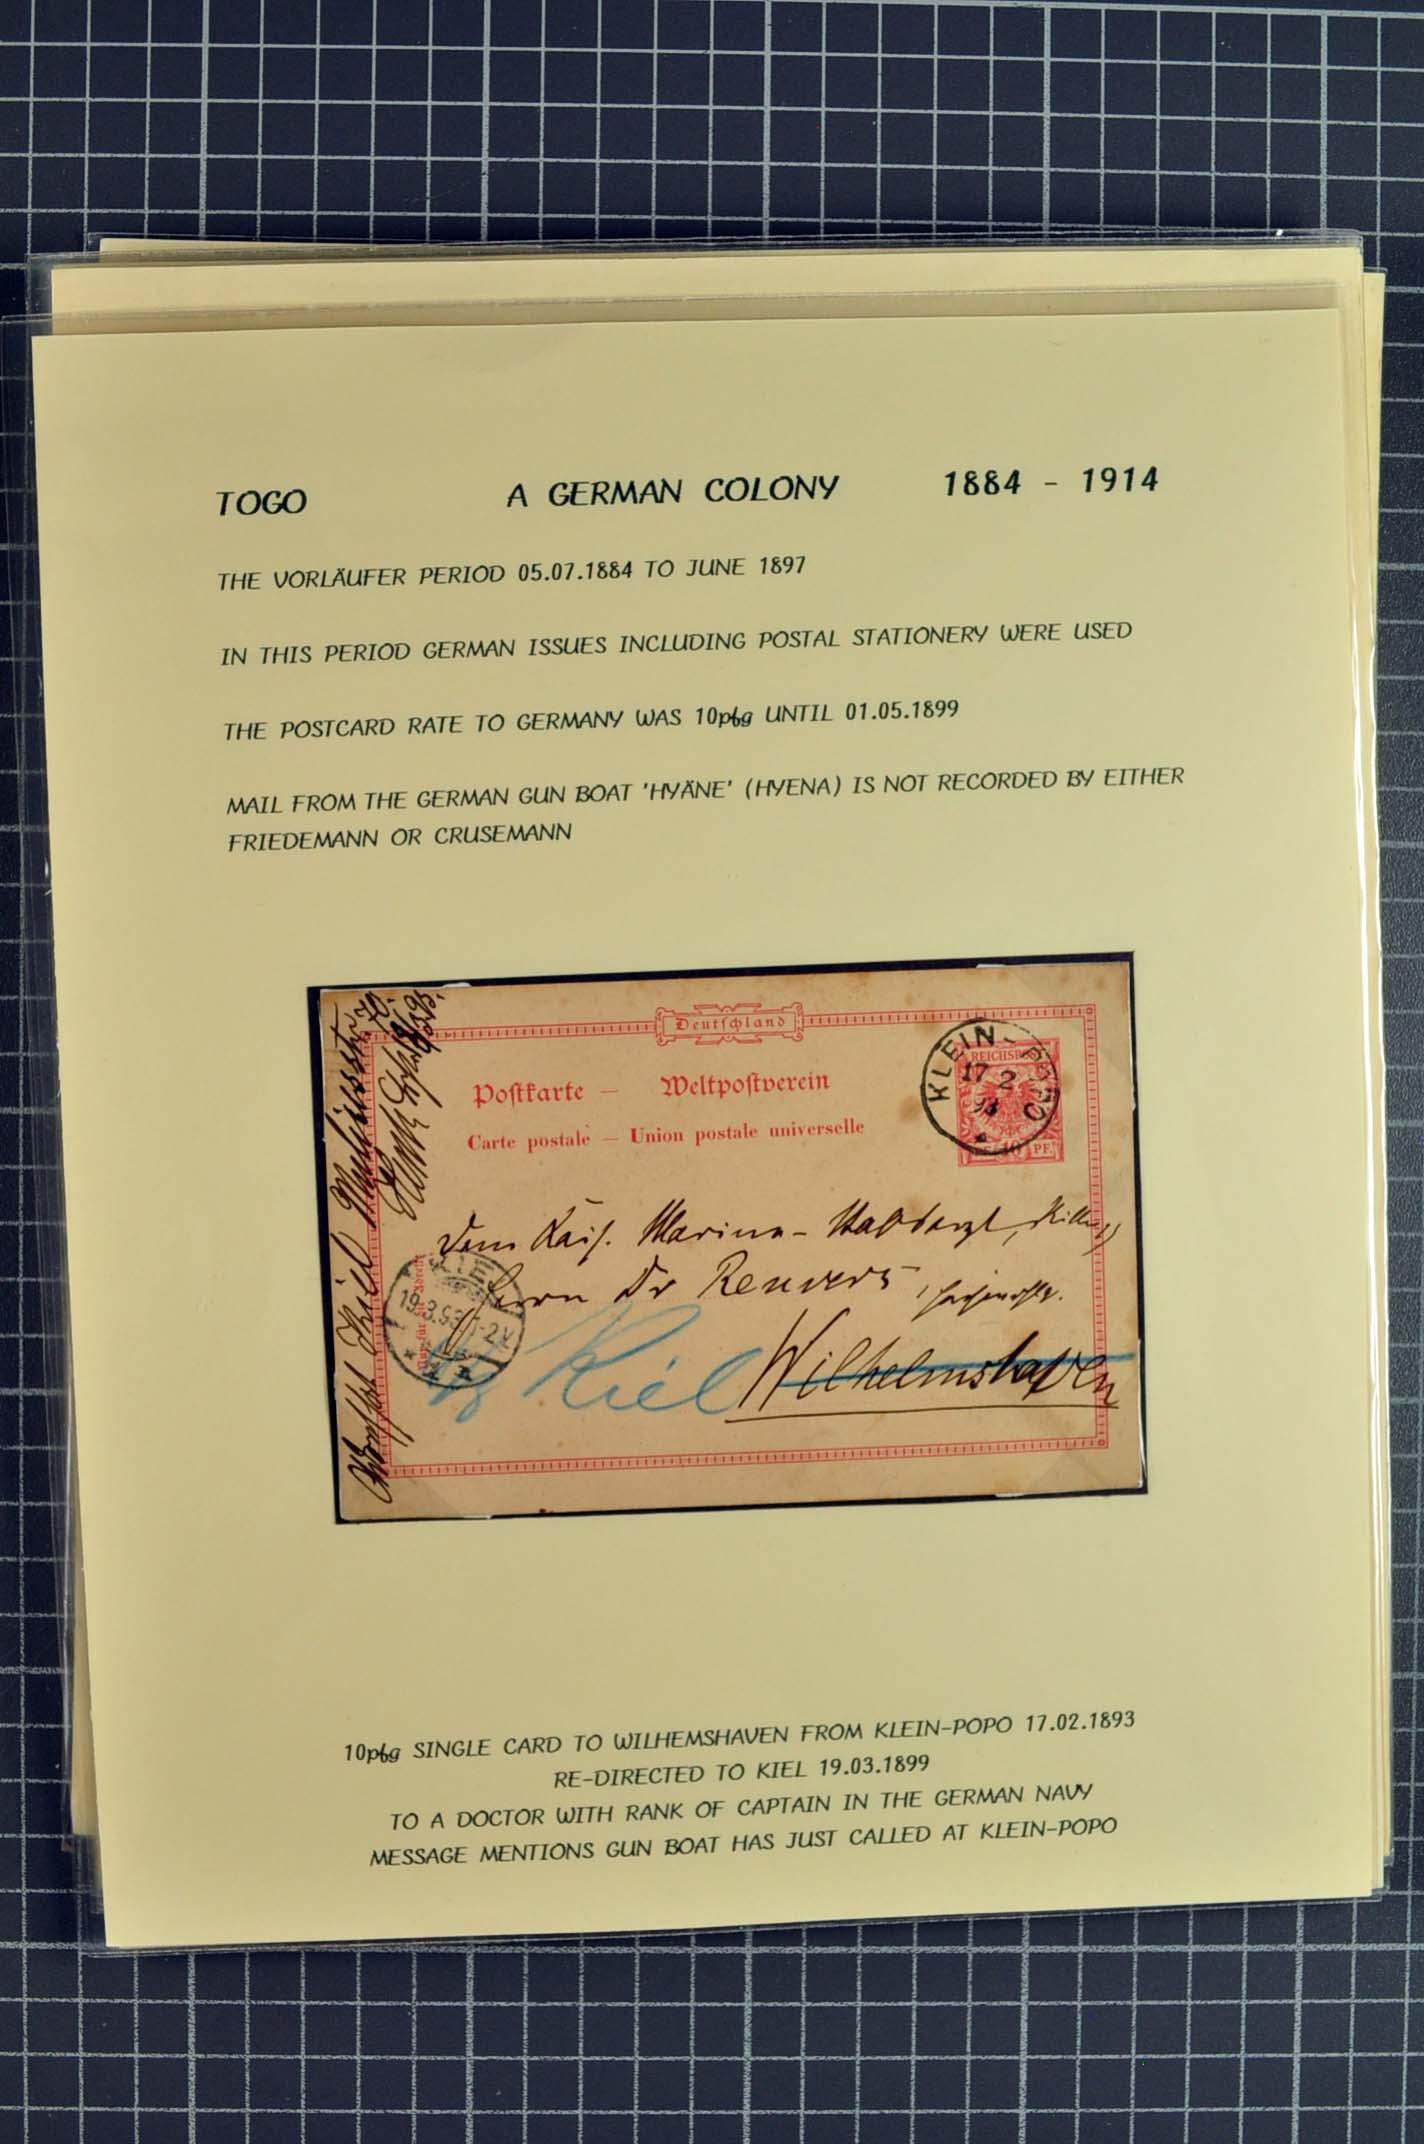 TOGO A GERMAN COLONY 1884 - 1914
THE VORLÄUFER PERIOD 05.07.1884 TO JUNE 1897
IN THIS PERIOD GERMAN ISSUES INCLUDING POSTAL STATIONERY WERE USED
THE POSTCARD RATE TO GERMANY WAS 10pfg UNTIL 01.05.1899
MAIL FROM THE GERMAN GUN BOAT 'HYÄNE' (HYENA) IS NOT RECORDED BY EITHER
FRIEDEMANN OR CRUSEMANN
Deutschland
Postkarte — Weltpostverein
Carte postale — Union postale universelle
KLEIN-POPO
17 2
93
REICHSPOST
10 PF.
Dem Kais. Marine-Stabsarzt, Ritter
Herrn Dr Renvers
Kiel Wilhelmshaven
KIEL
19.3.93 1-2V
10pfg SINGLE CARD TO WILHEMSHAVEN FROM KLEIN-POPO 17.02.1893
RE-DIRECTED TO KIEL 19.03.1899
TO A DOCTOR WITH RANK OF CAPTAIN IN THE GERMAN NAVY
MESSAGE MENTIONS GUN BOAT HAS JUST CALLED AT KLEIN-POPO